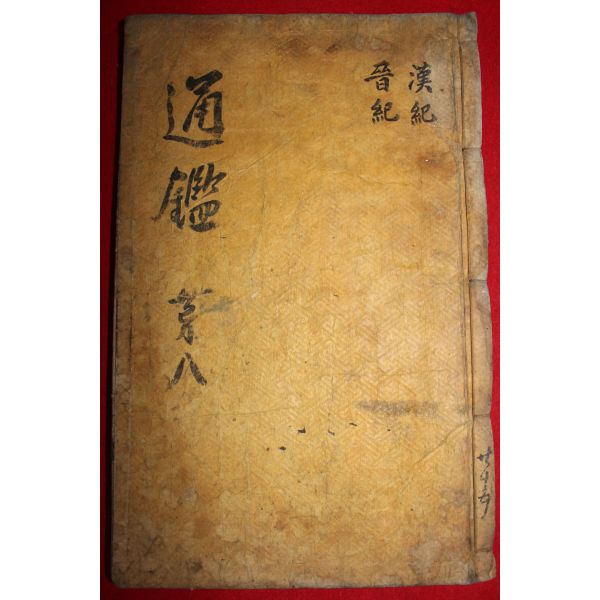 漢紀
晉紀
通鑑 苐八